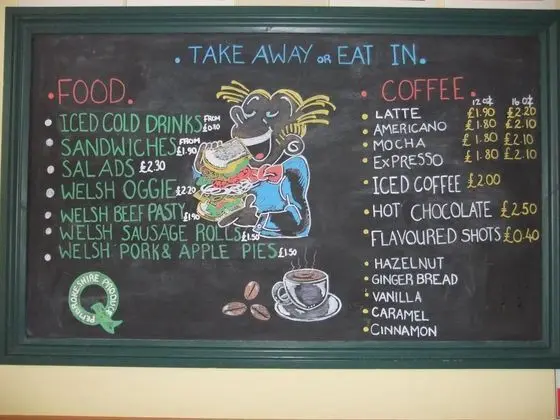 . TAKE AWAY OR EAT IN.
• FOOD.
ICED COLD DRINKS FROM £0.80
SANDWICHES FROM £1.90
SALADS £2.30
WELSH OGGIE £2.20
WELSH BEEF PASTY £1.90
WELSH SAUSAGE ROLLS £1.50
WELSH PORK & APPLE PIES £1.50
PEMBROKESHIRE PRODUCE
• COFFEE.
12 oz 16 oz
LATTE £1.90 £2.20
AMERICANO £1.80 £2.10
MOCHA £1.80 £2.10
ExPRESSO £1.80 £2.10
ICED COFFEE £2.00
HOT CHOCOLATE £2.50
FLAVOURED SHOTS £0.40
HAZELNUT
GINGER BREAD
VANILLA
CARAMEL
CINNAMON